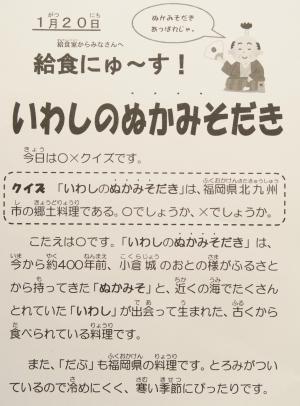 1月20日
給食室からみなさんへ
ぬかみそだき
あっぱれじゃ。
給食にゅ～す！
いわしのぬかみそだき
今日は〇×クイズです。
クイズ 「いわしのぬかみそだき」は、福岡県北九州
市の郷土料理である。〇でしょうか、×でしょうか。
こたえは〇です。「いわしのぬかみそだき」は、
今から約400年前、小倉城のおとの様がふるさと
から持ってきた「ぬかみそ」と、近くの海でたくさん
とれていた「いわし」が出会って生まれた、古くから
食べられている料理です。
また、「だぶ」も福岡県の料理です。とろみがつい
ているので冷めにくく、寒い季節にぴったりです。